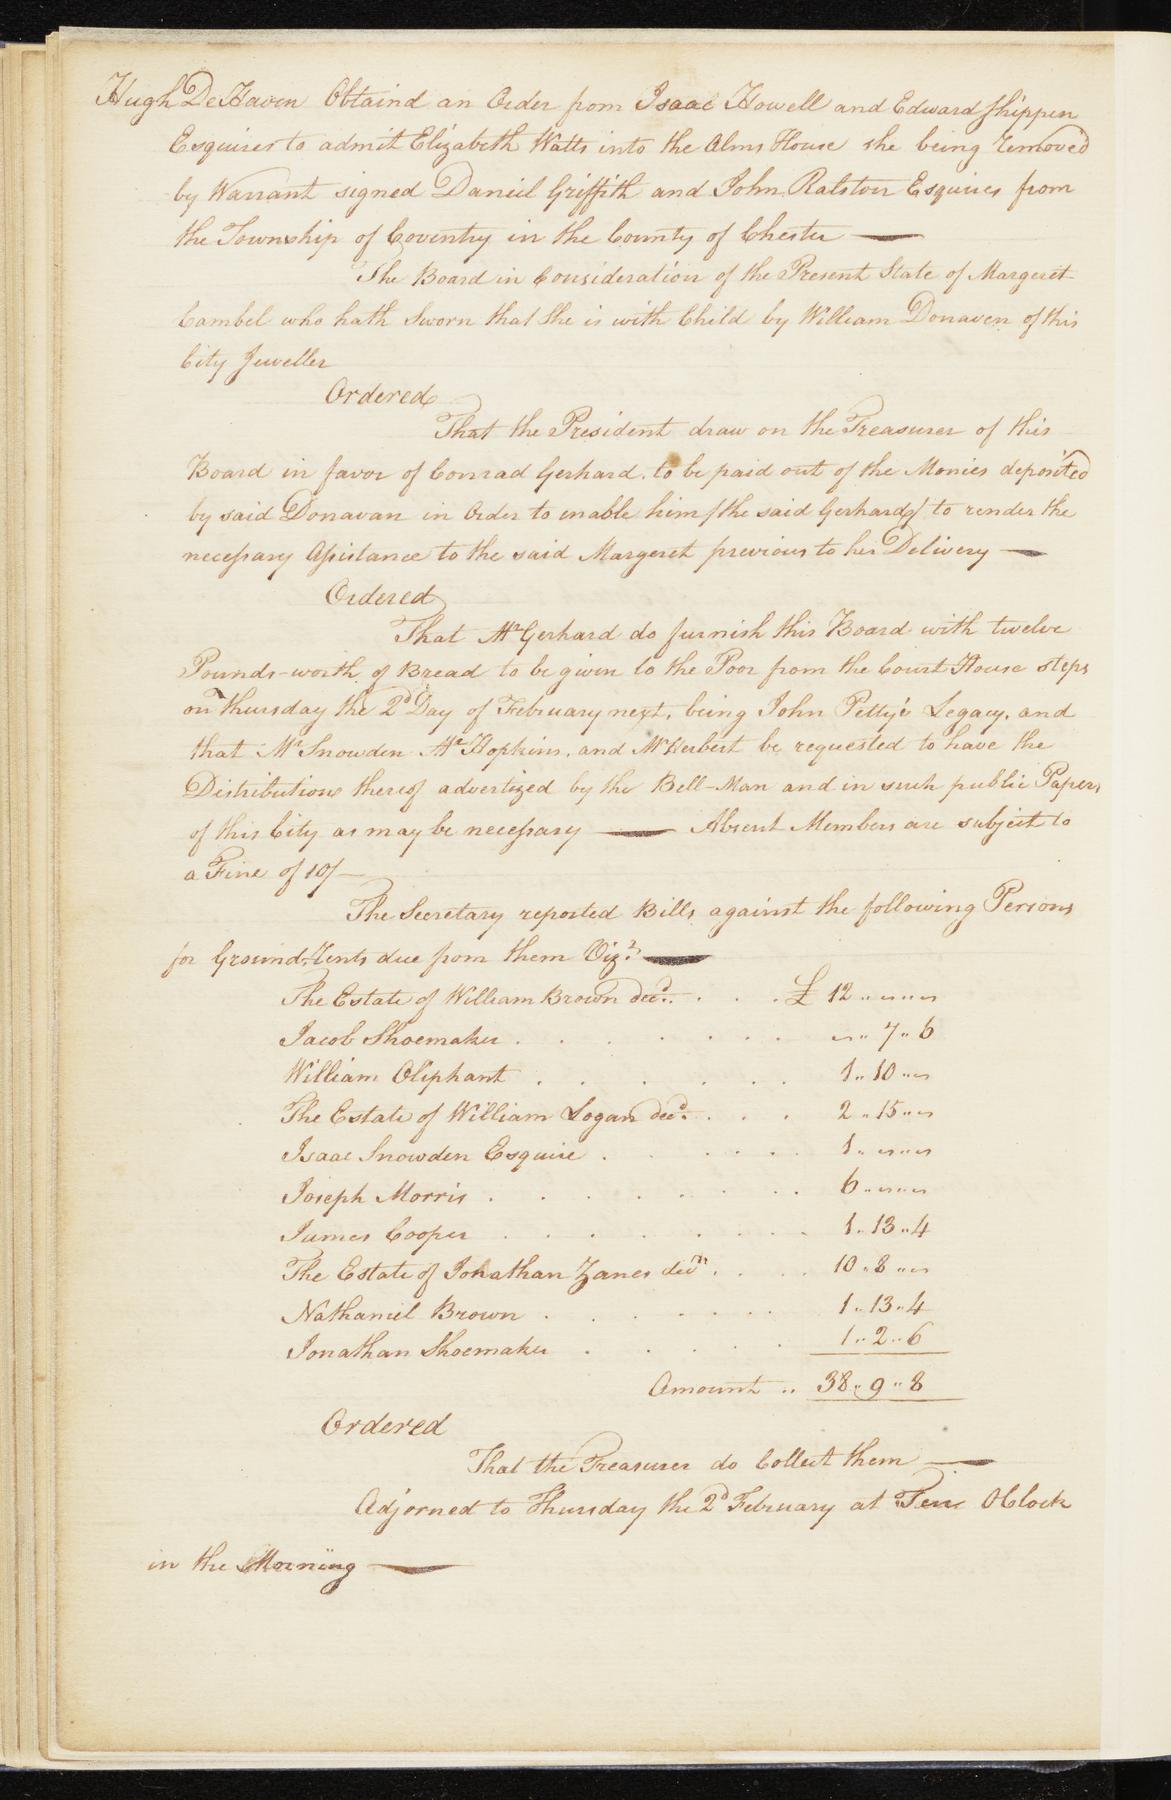 Hugh DeHaven Obtaind an Order from Isaac Howell and Edward Shippen
Esquires to admit Elizabeth Watts into the Alms House she being removed
by Warrant signed Daniel Griffith and John Ralston Esquires from
the Township of Coventry in the County of Chester —
The Board in Consideration of the Present State of Margeret
Cambel who hath Sworn that She is with Child by William Donaven of this
City Jeweller
Ordered
That the President draw on the Treasurer of this
Board in favor of Conrad Gerhard, to be paid out of the Monies deposited
by said Donavan in Order to enable him /the said Gerhard/ to render the
necessary Assistance to the said Margeret previous to her Delivery —
Ordered
That Mr Gerhard do furnish this Board with twelve
Pounds-worth of Bread to be given to the Poor from the Court House steps
on thursday the 2d Day of February next, being John Petty's Legacy, and
that Mr Snowden Mr Hopkins, and Mr Herbert be requested to have the
Distributions thereof advertized by the Bell-Man and in such public Papers
of this City as may be necessary — Absent Members are subject to
a Fine of 10/—
The Secretary reported Bills against the following Persons
for Ground-Rents due from them Vizt. —
The Estate of William Brown decd. . . . £ 12 .. " .. "
Jacob Shoemaker . . . . . . . " .. 7 .. 6
William Oliphant . . . . . . 1 .. 10 .. "
The Estate of William Logan decd. . . . 2 .. 15 .. "
Isaac Snowden Esquire . . . . . 1 .. " .. "
Joseph Morris . . . . . . . . 6 .. " .. "
James Cooper . . . . . . . . 1 .. 13 .. 4
The Estate of Jonathan Zanes decd . . . . 10 .. 8 .. "
Nathaniel Brown . . . . . . 1 .. 13 .. 4
Jonathan Shoemaker . . . . . 1 .. 2 .. 6
Amount .. 38 .. 9 .. 8
Ordered
That the Treasurer do Collect them —
Adjorned to Thursday the 2d February at Ten OClock
in the Morning —